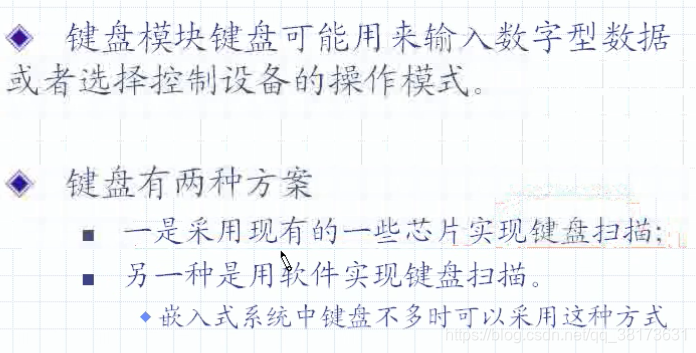 键盘模块键盘可能用来输入数字型数据
或者选择控制设备的操作模式。
键盘有两种方案
一是采用现有的一些芯片实现键盘扫描;
另一种是用软件实现键盘扫描。
嵌入式系统中键盘不多时可以采用这种方式
https://blog.csdn.net/qq_38173631